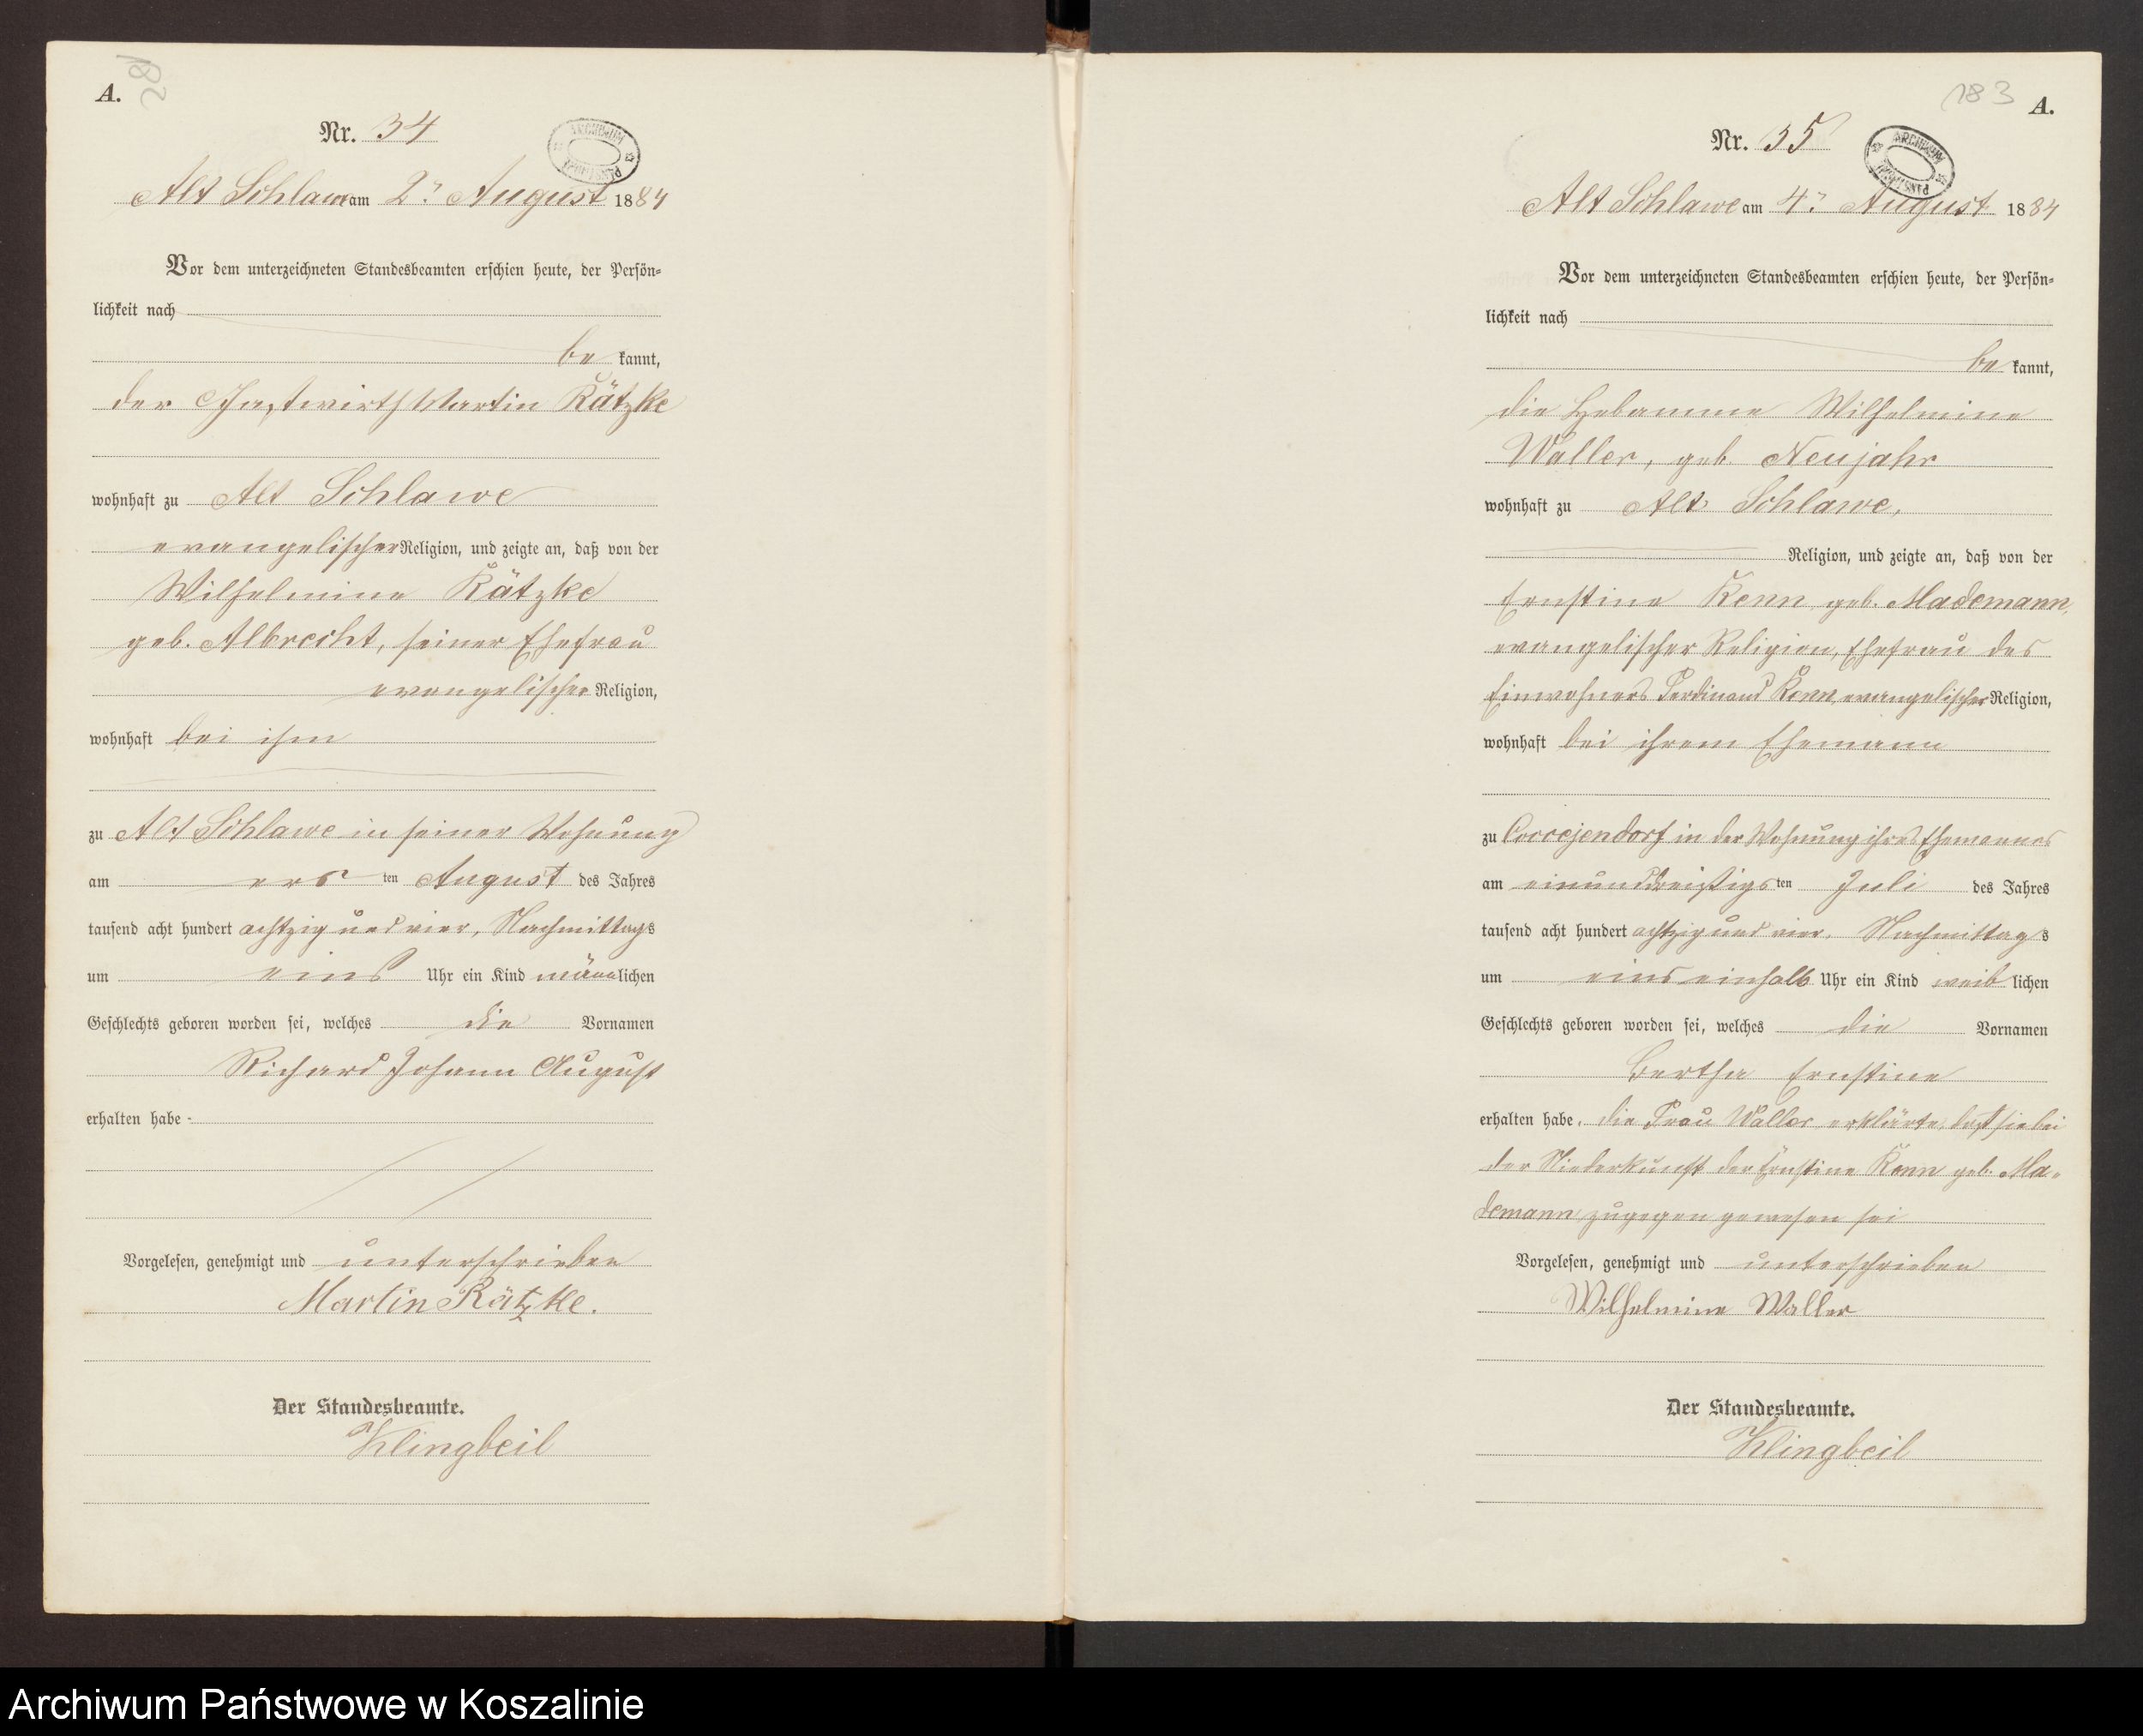 A.
Nr. 34
ARCHIWUM PAŃSTWOWE
Alt Schlawe am 2. August 1884
Vor dem unterzeichneten Standesbeamten erschien heute, der Persön=
lichkeit nach
be kannt,
der Gastwirth Martin Kätzke
wohnhaft zu Alt Schlawe
evangelischer Religion, und zeigte an, daß von der
Wilhelmine Kätzke
geb. Albrecht, seiner Ehefrau
evangelischer Religion,
wohnhaft bei ihm
zu Alt Schlawe in seiner Wohnung
am ersten August des Jahres
tausend acht hundert achtzig und vier, Nachmittags
um eins Uhr ein Kind männlichen
Geschlechts geboren worden sei, welches die Vornamen
Richard Johann August
erhalten habe
Vorgelesen, genehmigt und unterschrieben
Martin Kätzke.
Der Standesbeamte.
Klingbeil
183
A.
Nr. 35
ARCHIWUM PAŃSTWOWE
Alt Schlawe am 4. August 1884
Vor dem unterzeichneten Standesbeamten erschien heute, der Persön=
lichkeit nach
be kannt,
die Hebamme Wilhelmine
Waller, geb. Neujahr
wohnhaft zu Alt Schlawe,
Religion, und zeigte an, daß von der
Ernstine Kenn geb. Mademann,
evangelischer Religion, Ehefrau des
Einwohners Ferdinand Kenn, evangelischer Religion,
wohnhaft bei ihrem Ehemann
zu Coccejendorf in der Wohnung ihres Ehemannes
am einunddreißigsten Juli des Jahres
tausend acht hundert achtzig und vier, Nachmittags
um eins einhalb Uhr ein Kind weiblichen
Geschlechts geboren worden sei, welches die Vornamen
Bertha Ernstine
erhalten habe. die Frau Waller erklärte, daß sie bei
der Niederkunft der Ernstine Kenn geb. Ma=
demann zugegen gewesen sei
Vorgelesen, genehmigt und unterschrieben
Wilhelmine Waller
Der Standesbeamte.
Klingbeil
Archiwum Państwowe w Koszalinie